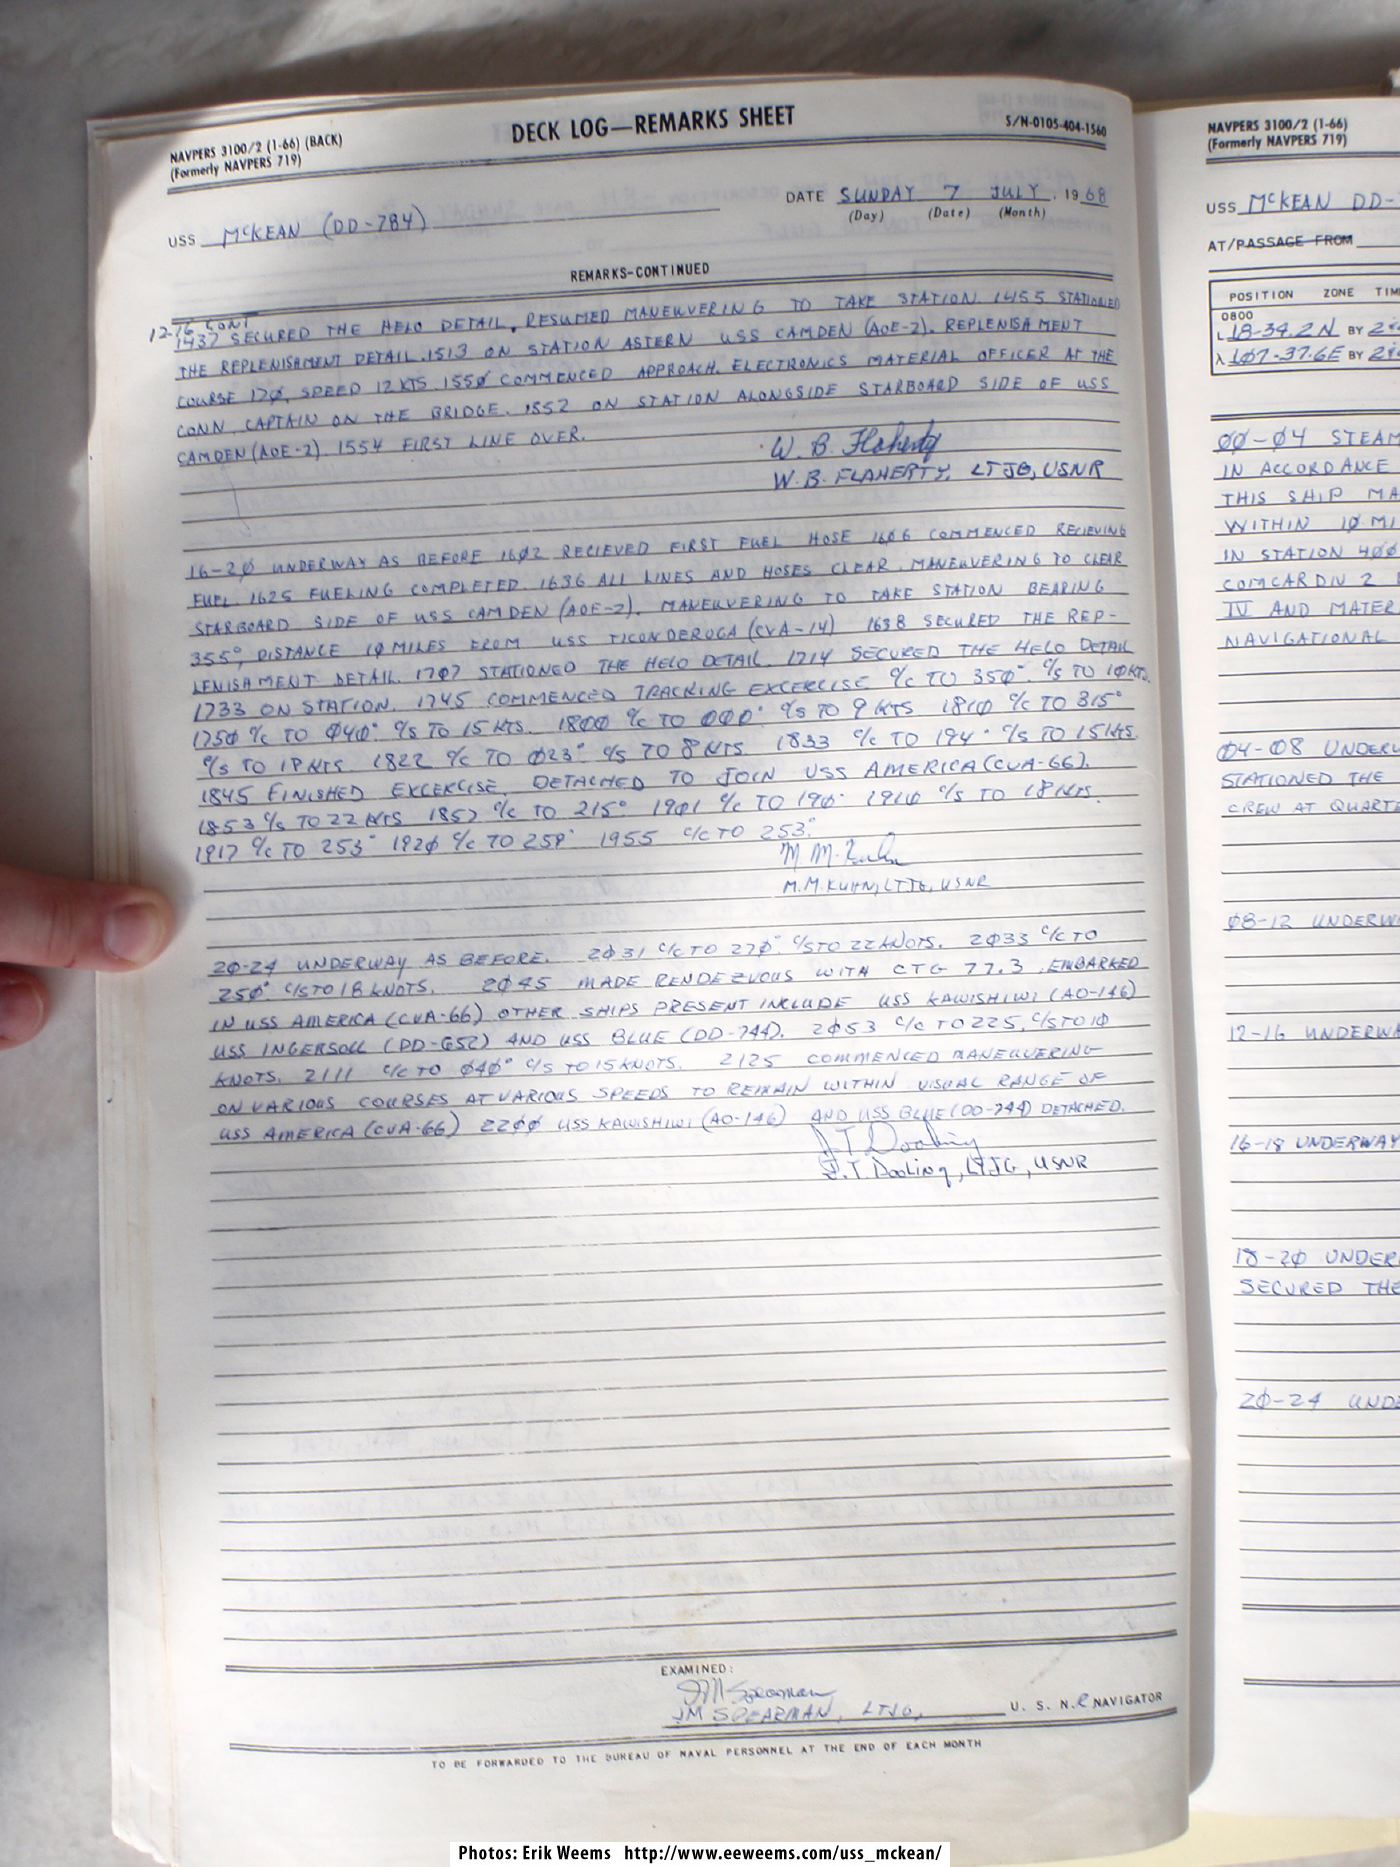 NAVPERS 3100/2 (1-66) (BACK)
(Formerly NAVPERS 719)
DECK LOG—REMARKS SHEET
S/N-0105-404-1560
USS McKEAN (DD-784)
DATE SUNDAY 7 JULY, 1968
(Day) (Date) (Month)
REMARKS-CONTINUED
12-16 CONT
1437 SECURED THE HELO DETAIL. RESUMED MANEUVERING TO TAKE STATION. 1455 STATIONED
THE REPLENISHMENT DETAIL. 1513 ON STATION ASTERN USS CAMDEN (AOE-2). REPLENISHMENT
COURSE 170, SPEED 12 KTS. 1550 COMMENCED APPROACH. ELECTRONICS MATERIAL OFFICER AT THE
CONN CAPTAIN ON THE BRIDGE. 1552 ON STATION ALONGSIDE STARBOARD SIDE OF USS
CAMDEN (AOE-2). 1554 FIRST LINE OVER.
W. B. Flaherty
W. B. FLAHERTY, LTJG, USNR
16-20 UNDERWAY AS BEFORE 1602 RECIEVED FIRST FUEL HOSE 1606 COMMENCED RECIEVING
FUEL. 1625 FUELING COMPLETED. 1636 ALL LINES AND HOSES CLEAR. MANEUVERING TO CLEAR
STARBOARD SIDE OF USS CAMDEN (AOE-2). MANEUVERING TO TAKE STATION BEARING
355°, DISTANCE 10 MILES FROM USS TICONDEROGA (CVA-14) 1638 SECURED THE REP-
LENISHMENT DETAIL. 1707 STATIONED THE HELO DETAIL. 1714 SECURED THE HELO DETAIL
1733 ON STATION. 1745 COMMENCED TRACKING EXCERCISE C/C TO 350° C/S TO 10 KTS.
1750 C/C TO 040° C/S TO 15 KTS. 1800 C/C TO 000° C/S TO 9 KTS 1810 C/C TO 315°
C/S TO 18 KTS 1822 C/C TO 023° C/S TO 8 KTS. 1833 C/C TO 194° C/S TO 15 KTS.
1845 FINISHED EXCERCISE, DETACHED TO JOIN USS AMERICA (CVA-66).
1853 C/S TO 22 KTS 1857 C/C TO 215° 1901 C/C TO 190° 1910 C/S TO 18 KTS.
1917 C/C TO 253° 1920 C/C TO 259° 1955 C/C TO 253°
M. M. Kuhn
M. M. KUHN, LTJG, USNR
20-24 UNDERWAY AS BEFORE. 2031 C/C TO 270° C/S TO 22 KNOTS. 2033 C/C TO
250° C/S TO 18 KNOTS. 2045 MADE RENDEZVOUS WITH CTG 77.3, EMBARKED
IN USS AMERICA (CVA-66) OTHER SHIPS PRESENT INCLUDE USS KAWISHIWI (AO-146)
USS INGERSOLL (DD-652) AND USS BLUE (DD-744). 2053 C/C TO 225, C/S TO 10
KNOTS. 2111 C/C TO 040° C/S TO 15 KNOTS. 2125 COMMENCED MANEUVERING
ON VARIOUS COURSES AT VARIOUS SPEEDS TO REMAIN WITHIN VISUAL RANGE OF
USS AMERICA (CVA-66) 2200 USS KAWISHIWI (AO-146) AND USS BLUE (DD-744) DETACHED.
J T Dooling
J. T. Dooling, LTJG, USNR
EXAMINED:
JM Spearman
JM SPEARMAN, LTJG, U. S. N.R NAVIGATOR
TO BE FORWARDED TO THE BUREAU OF NAVAL PERSONNEL AT THE END OF EACH MONTH
NAVPERS 3100/2 (1-66)
(Formerly NAVPERS 719)
USS McKEAN DD-
AT/PASSAGE FROM
POSITION ZONE TIM
0800
L 18-34.2N BY
λ 107-37.6E BY
00-04 STEAM
IN ACCORDANCE
THIS SHIP MA
WITHIN 10 MI
IN STATION 400
COMCARDIV 2
IV AND MATER
NAVIGATIONAL
04-08 UNDERW
STATIONED THE
CREW AT QUART
08-12 UNDERW
12-16 UNDERWA
16-18 UNDERWAY
18-20 UNDER
SECURED THE
20-24 UNDE
Photos: Erik Weems http://www.eeweems.com/uss_mckean/